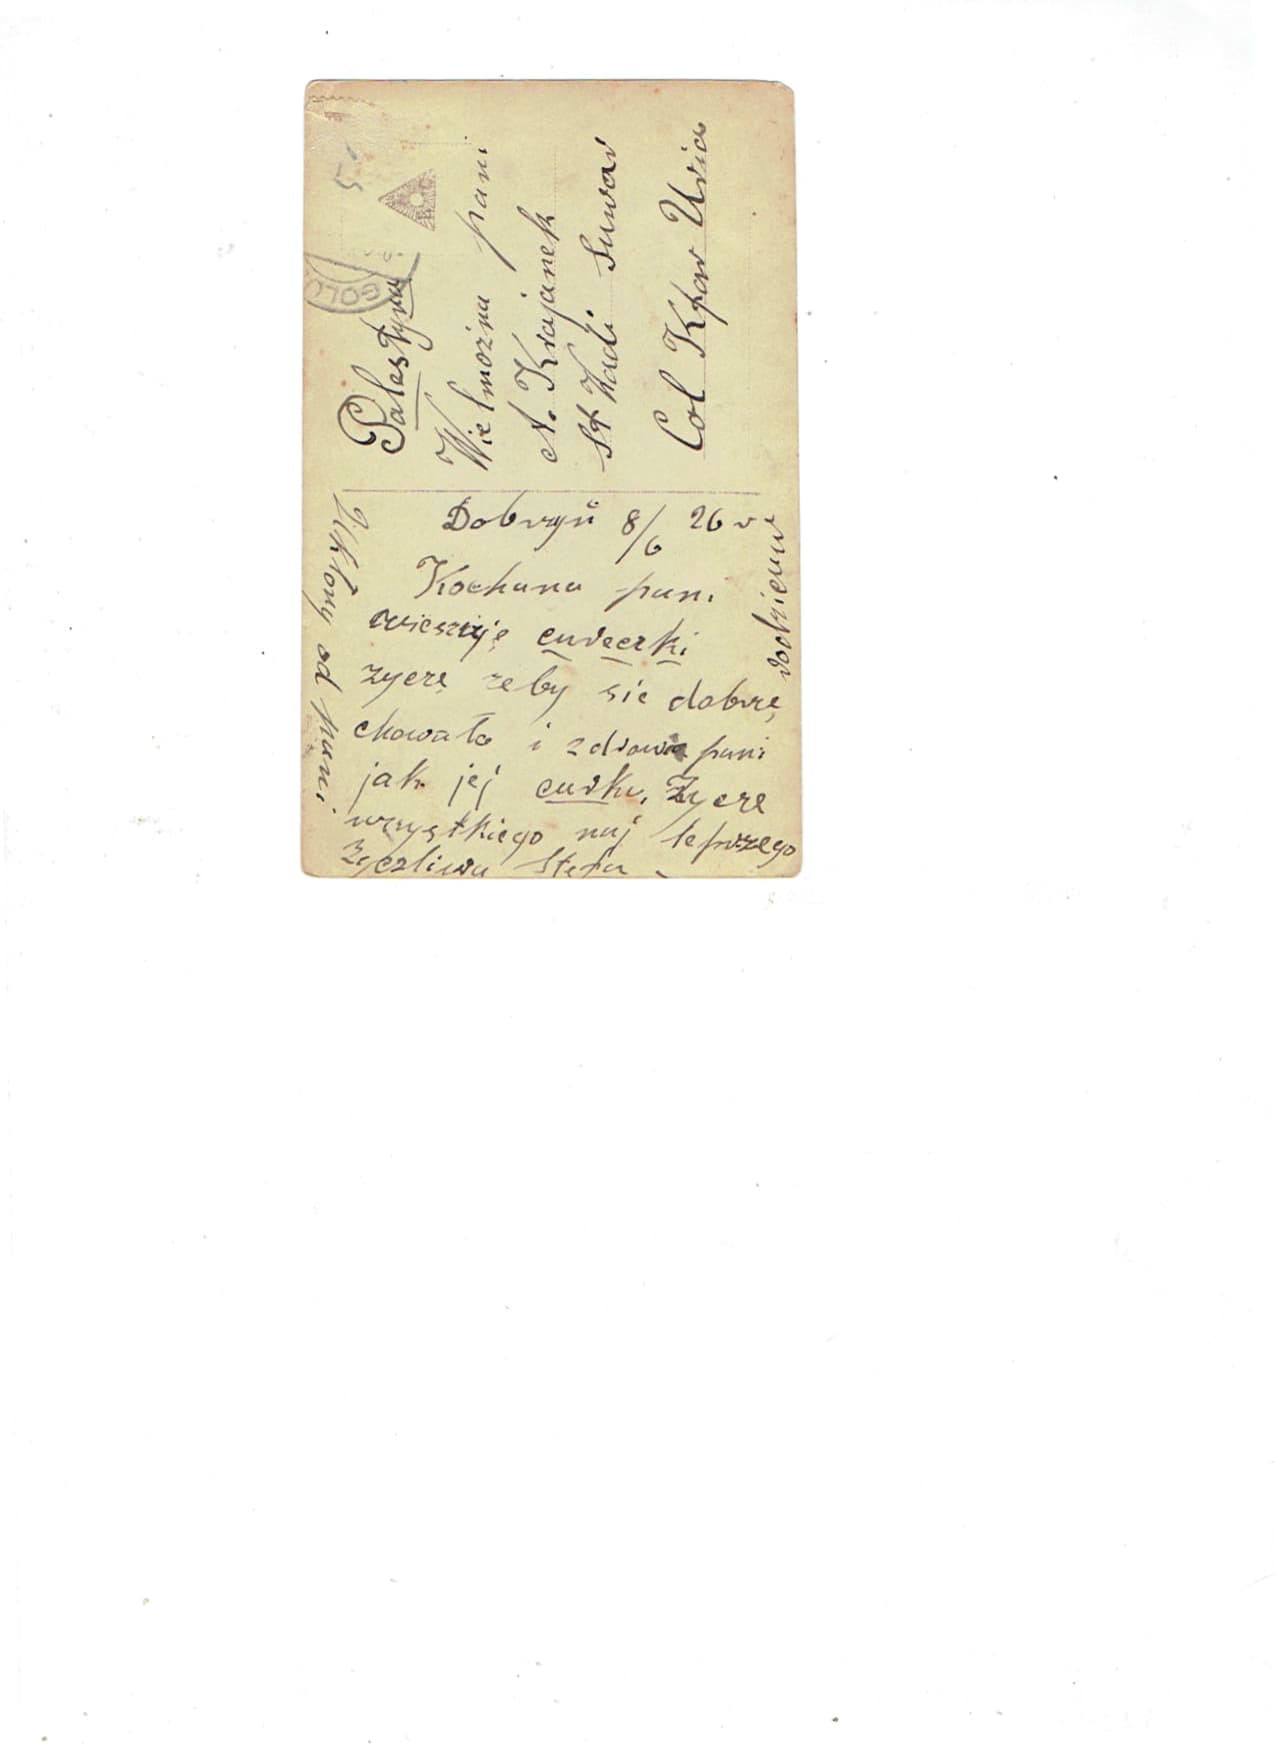 5
GOLU
Palestyna
Wielmożna pani
A. Krajanek
St Suwar
Col Kfar Uria
Dobrzyń 8/6 26 r
Kochana pani
wieszuję cureczki
zyczę zeby sie dobrze
chowała i zdrowa pani
jak jej curka, zycze
wszystkiego naj lepszego
Życzliwa Stefa
Ukłony od pani